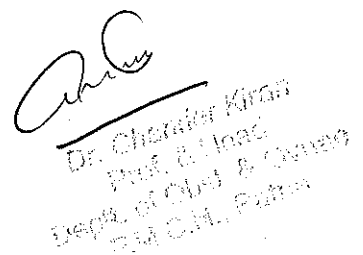 Dr. Chander Kiran
Prof. & Head
Deptt. of Obst. & Gynae
P.M.C.H., Patna